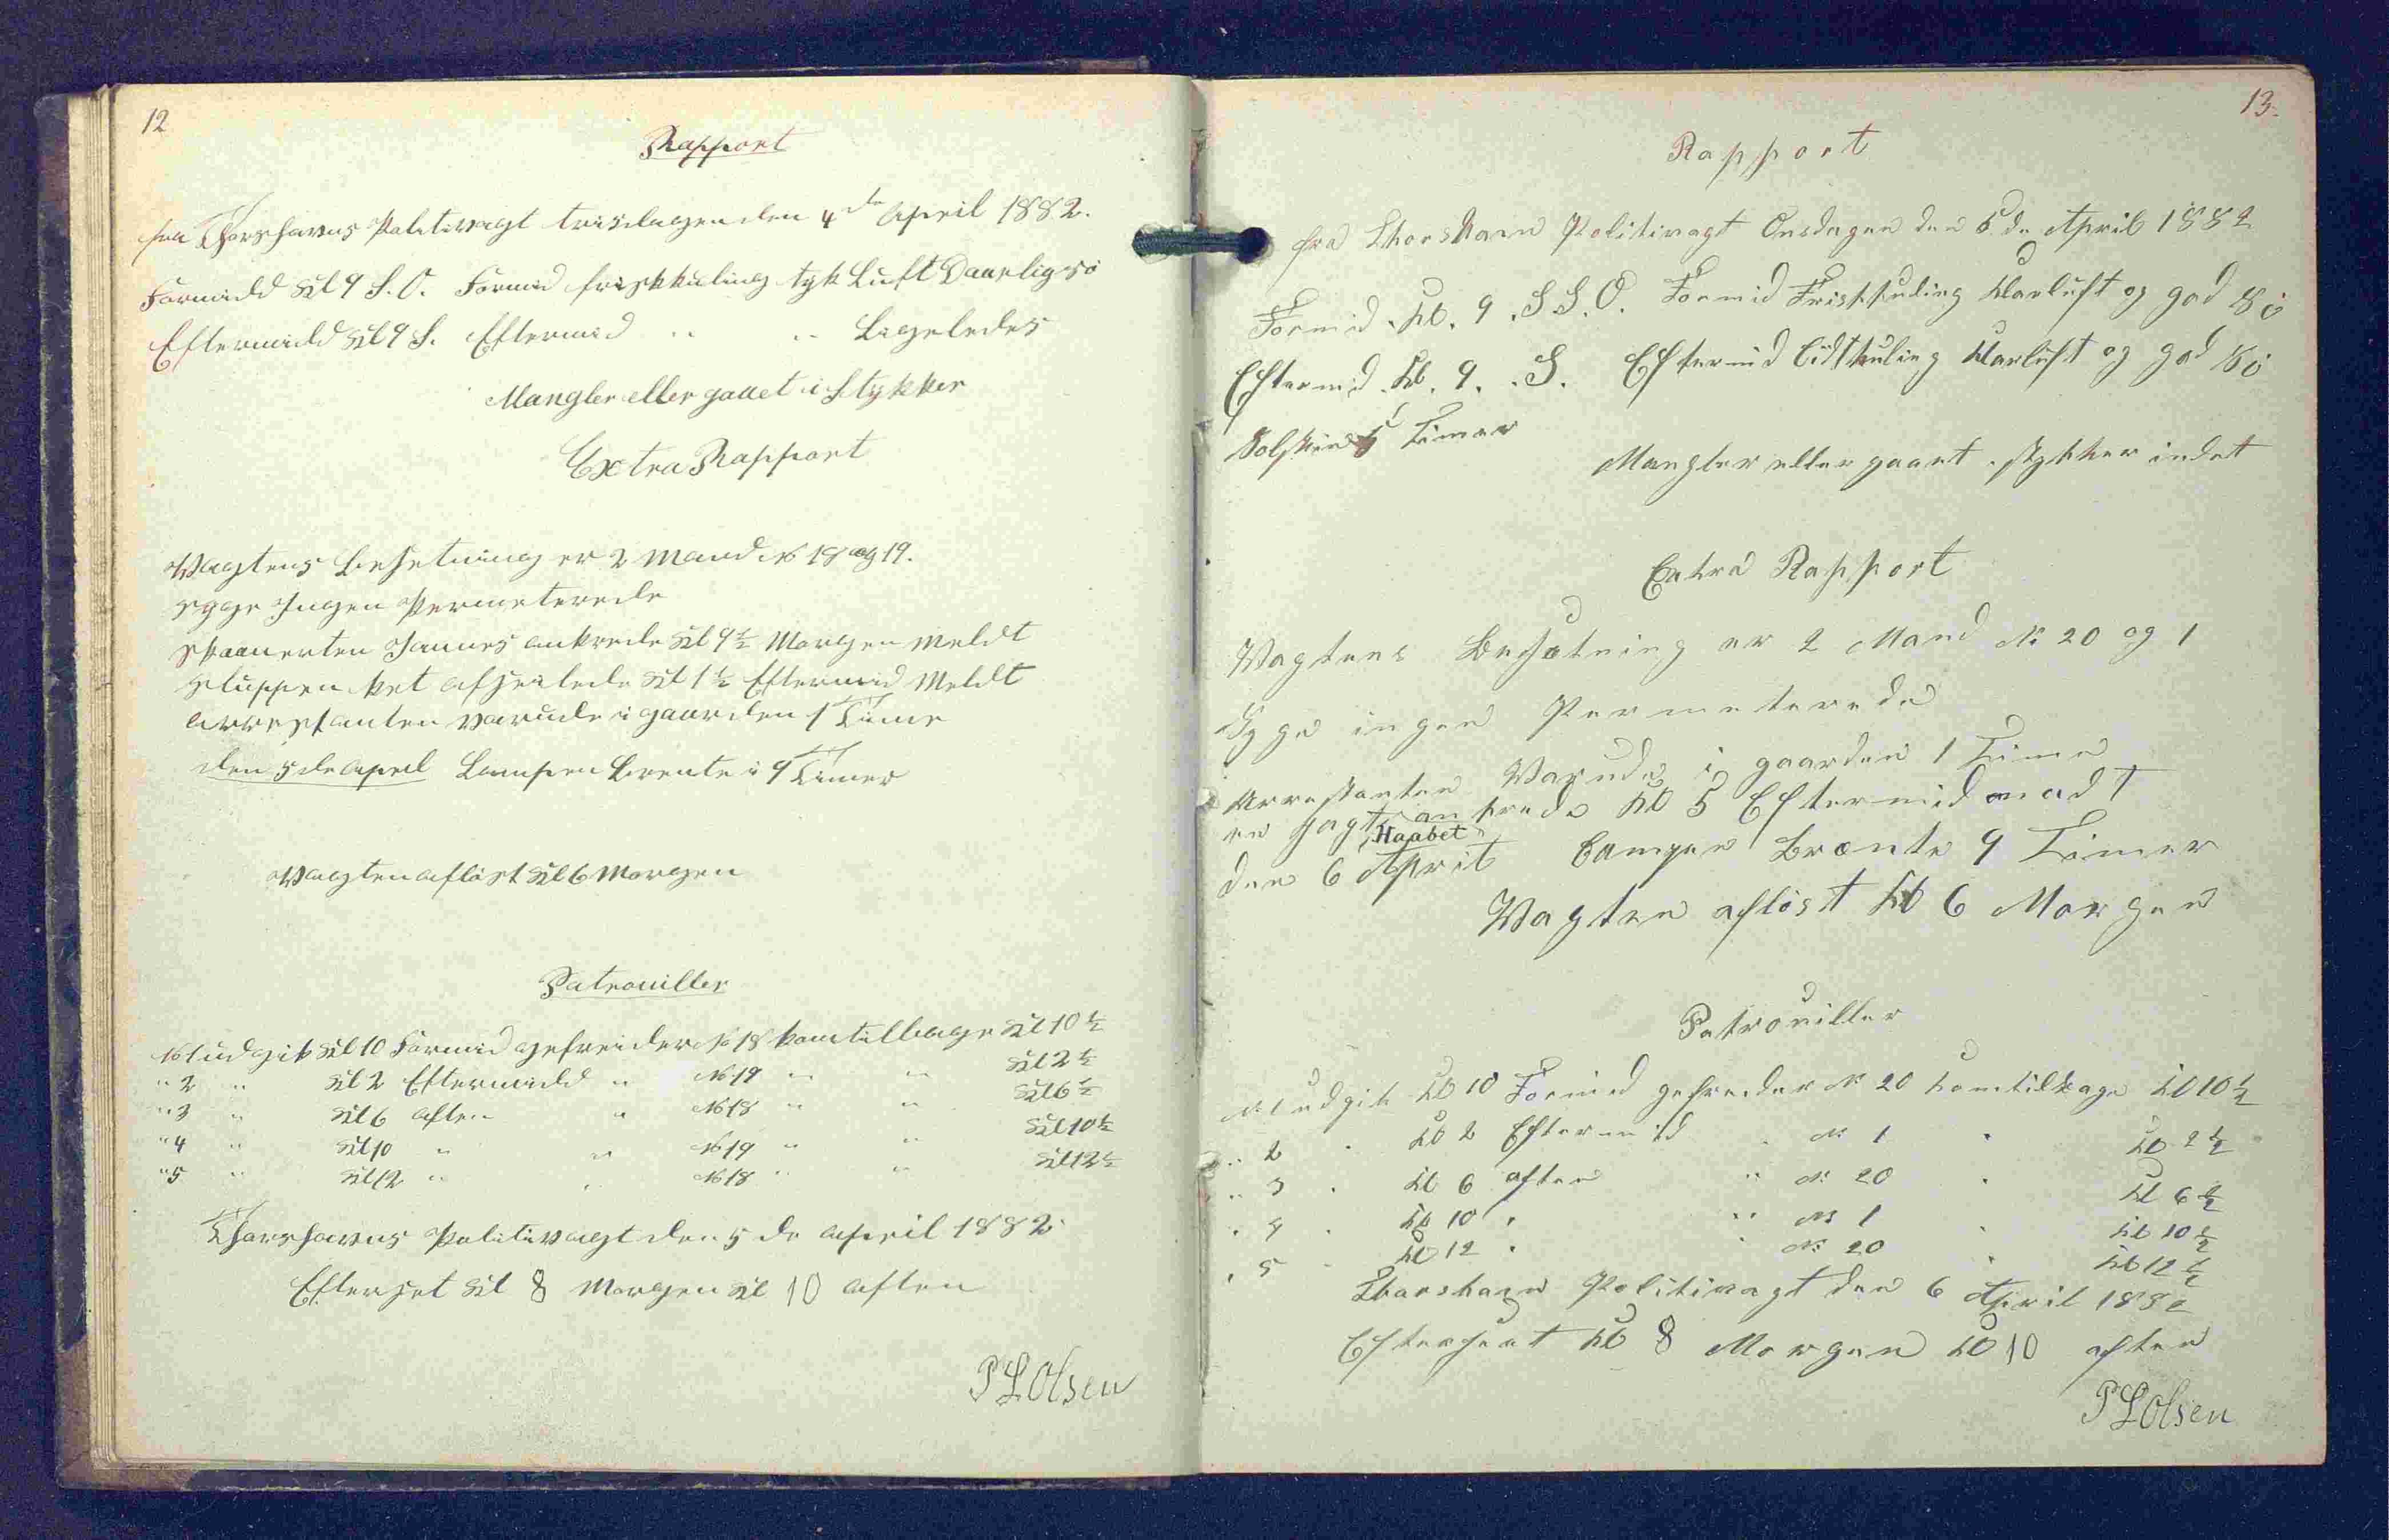 12
Rapport
fra Thorshavns Politivagt tirsdagen den 4de April 1882.
Formidd Kl 9 S.O. Formid friskkuling tyk Luft Daarlig sö
Eftermidd Kl 9 S. Eftermid " " Ligeledes
Mangler eller gaaet i Stykker
Extra Rapport
Vagtens besetning er 2 Mand No 18 og 19.
syge Ingen Permeterede
Skonerten Jannes ankrede Kl 9½ Morgen Meldt
Sluppen ket afseilede Kl 1½ Eftermid Meldt
arrestanten varude i gaarden 1 Time
den 5de Apel Lampen brente i 9 Timer
Vagten aflöst Kl 6 Morgen
Patrouiller
No 1 udgik Kl 10 Formid gefreider No 18 kom tilbage Kl 10½
" 2 " Kl 2 Eftermidd " No 19 " " Kl 2½
" 3 " Kl 6 aften " No 18 " " Kl 6½
" 4 " Kl 10 " " No 19 " " Kl 10½
" 5 " Kl 12 " " No 18 " " Kl 12½
Thorshavns Politivagt den 5de April 1882
Efterset Kl 8 Morgen Kl 10 aften
P L Olsen
13.
Rapport
fra Thorshavn Politivagt Onsdagen den 5de April 1882
Formid. Kl. 9. S.S.O. Formid Friskkuling klarluft og god Sö
Eftermid. Kl. 9. S. Eftermid lidtkuling klarluft og god Sö
Solskin 5 Timer
Mangler eller gaaet i stykker indet
Extra Rapport
Vagtens Besötning er 2 Mand No 20 og 1
Syge ingen Permeterede
Arrestanten Varude i gaarden 1 Time
en Jagt "Haabet" ankrede kl 5 Eftermid madt
den 6 April Lampen brænte 9 Timer
Vagten aflöst Kl 6 Morgen
Patrouiller
No 1 udgik Kl 10 Formid gefreider No 20 kom tilbage Kl 10½
" 2 " Kl 2 Eftermid " No 1 " Kl 2½
" 3 " Kl 6 aften " No 20 " Kl 6½
" 4 " Kl 10 " " No 1 " Kl 10½
" 5 " Kl 12 " " No 20 " Kl 12½
Thorshavn Politivagt den 6 April 1882
Efterseet Kl 8 Morgen Kl 10 aften
P L Olsen